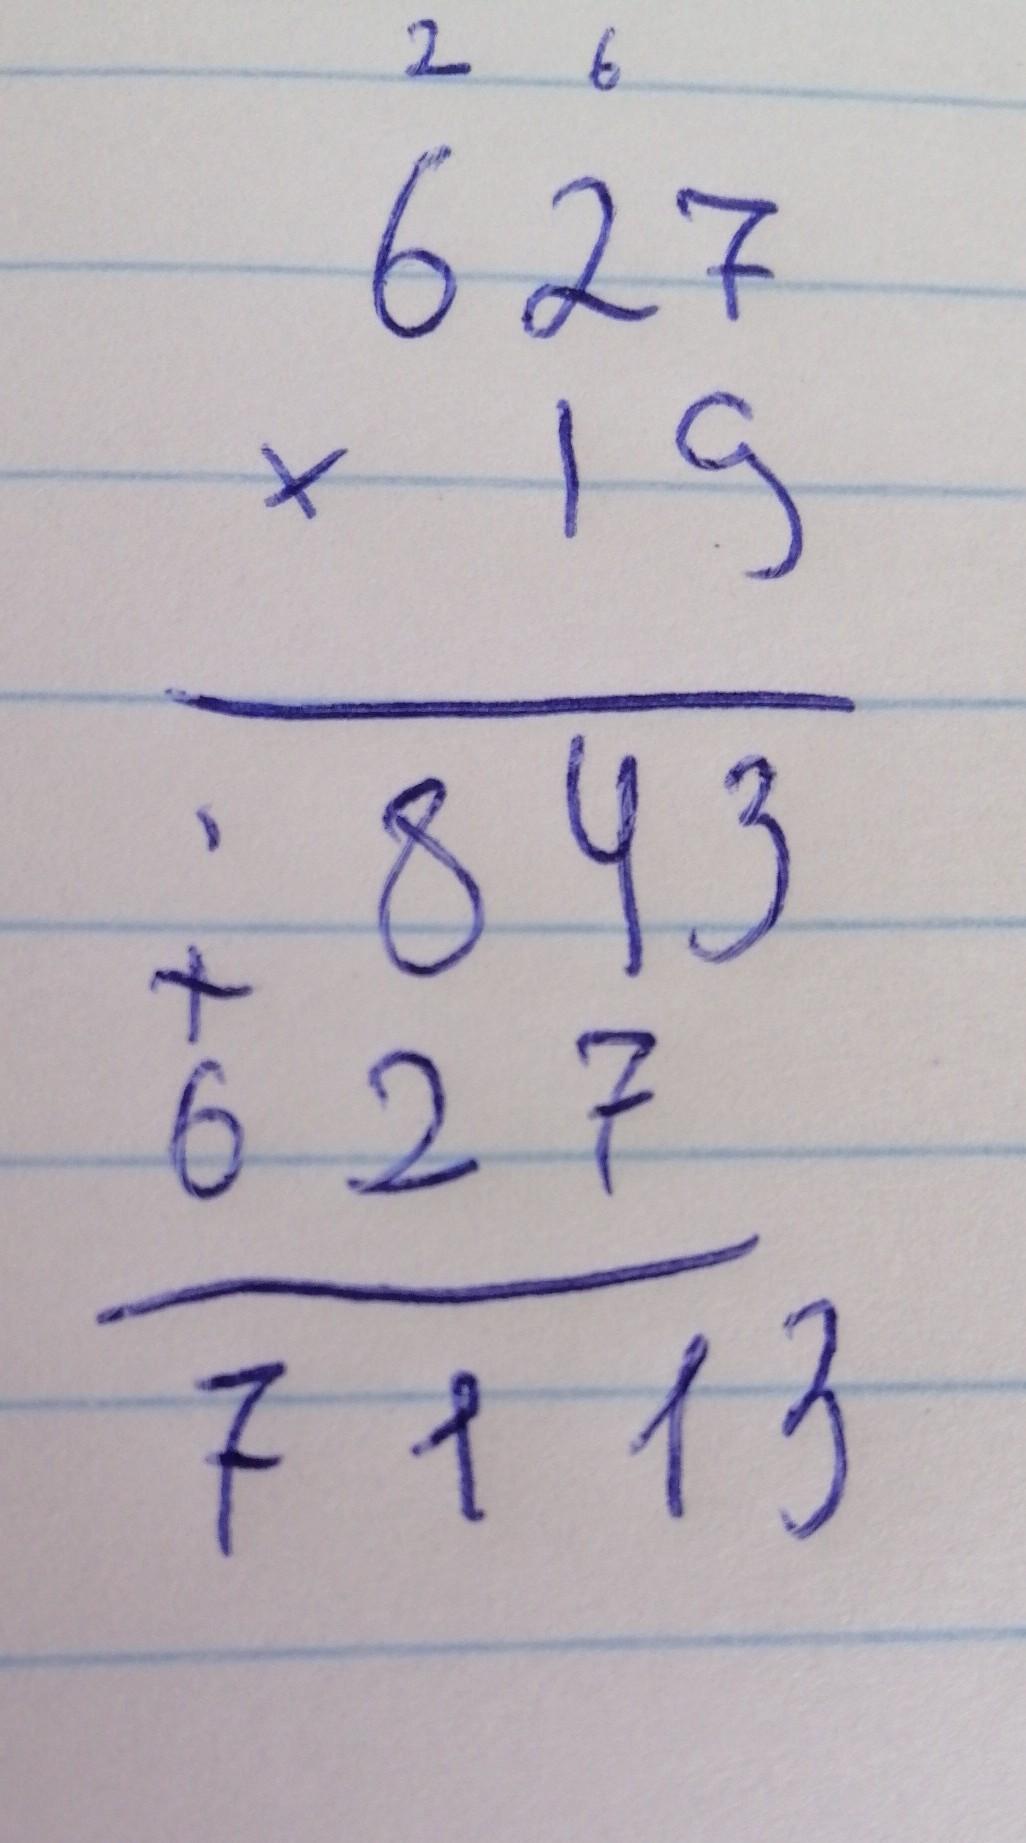 2 6
6 2 7
× 1 9
1
8 4 3
+
6 2 7
7 1 1 3